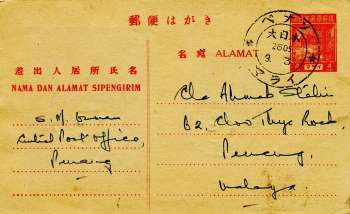 郵便はがき
名宛 ALAMAT
差出人居所氏名
NAMA DAN ALAMAT SIPENGIRIM
S. M.
Central Post Office,
Penang
Che Ahmad
62, Choo Thye Road,
Penang,
Malaya.
ペナン
大日本
2605
9. 3
マライ